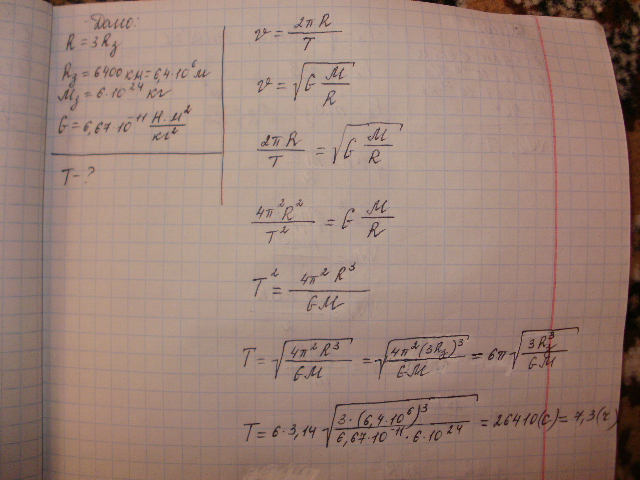 Дано:
R = 3Rз
Rз = 6400 км = 6,4·10⁶ м
Mз = 6·10²⁴ кг
G = 6,67·10⁻¹¹ Н·м²/кг²
T - ?
v = 2πR/T
v = √(G M/R)
2πR/T = √(G M/R)
4π²R²/T² = G M/R
T² = 4π²R³/GM
T = √(4π²R³/GM) = √(4π²(3Rз)³/GM) = 6π√(3Rз³/GM)
T = 6·3,14 √(3·(6,4·10⁶)³/6,67·10⁻¹¹·6·10²⁴) = 26410(с) = 7,3(ч)